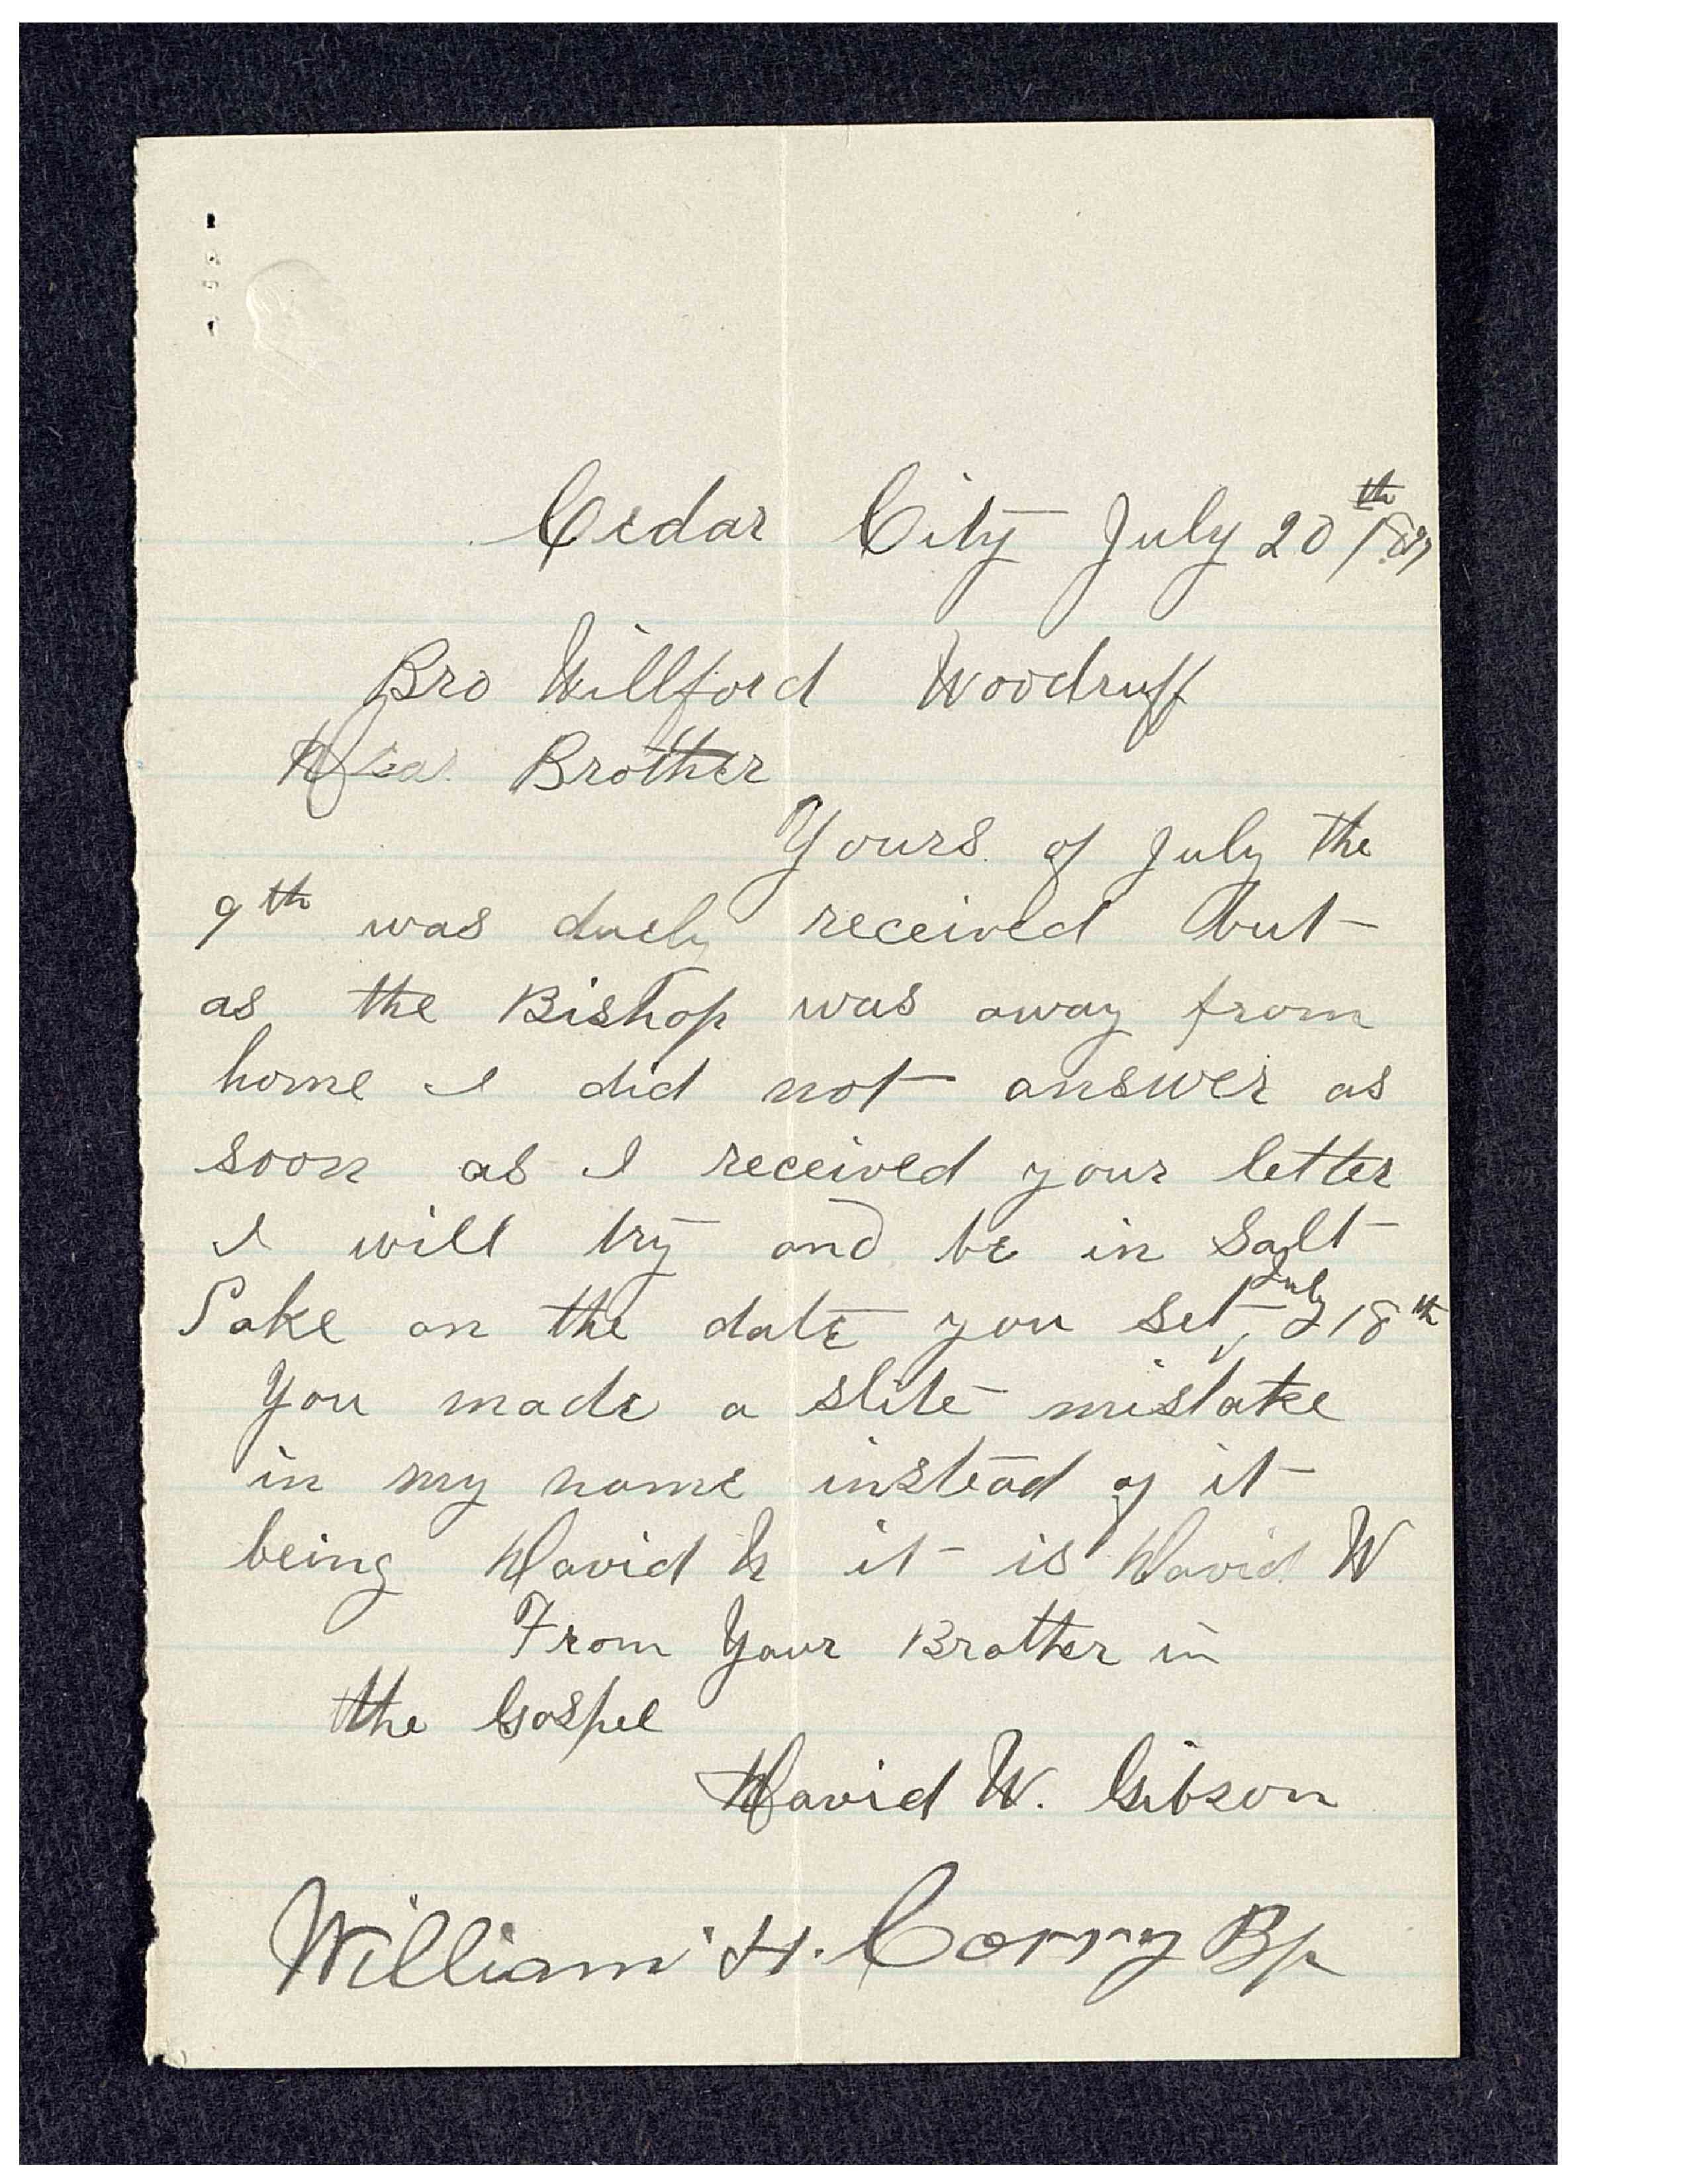 Cedar City July 20th
Bro Willford Woodruff
Dear Brother
Yours of July the
9th was duely received but
as the Bishop was away from
home I did not answer as
soon as I received your letter
I will try and be in Salt
Lake on the date you set, July 18th
You made a slite mistake
in my name instead of it
being David it is David W
From Your Brother in
the Gospel
David W. Gibson
William H. Corry Bp